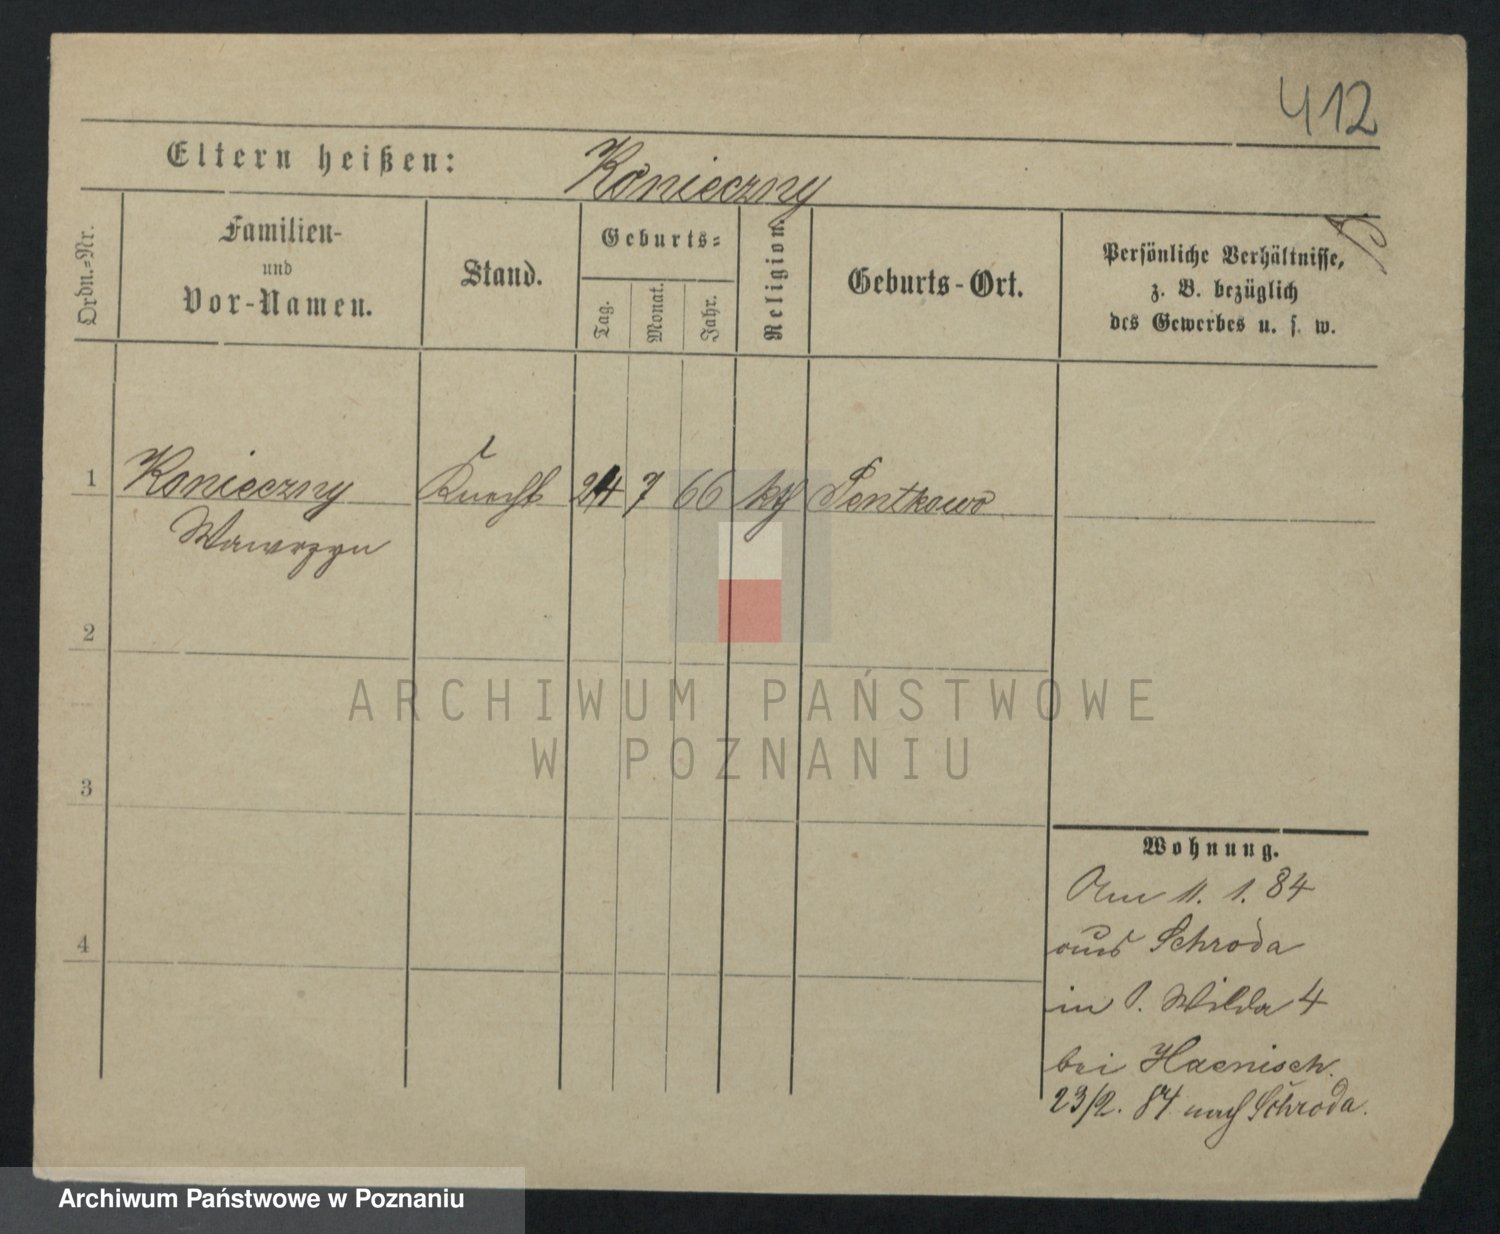 412
Eltern heißen: Konieczny
Ordn.=Nr.
Familien-
und
Vor-Namen.
Stand.
Geburts=
Tag.
Monat.
Jahr.
Religion.
Geburts-Ort.
Persönliche Verhältnisse,
z. B. bezüglich
des Gewerbes u. s. w.
1 Konieczny Knecht 24 7 66 kth Pentkowo
Wawrzyn
2
ARCHIWUM PAŃSTWOWE
W POZNANIU
3
Wohnung.
Am 11. 1. 84
aus Schroda
4
in O. Wilda 4
bei Haenisch.
23/2. 84 nach Schroda.
Archiwum Państwowe w Poznaniu